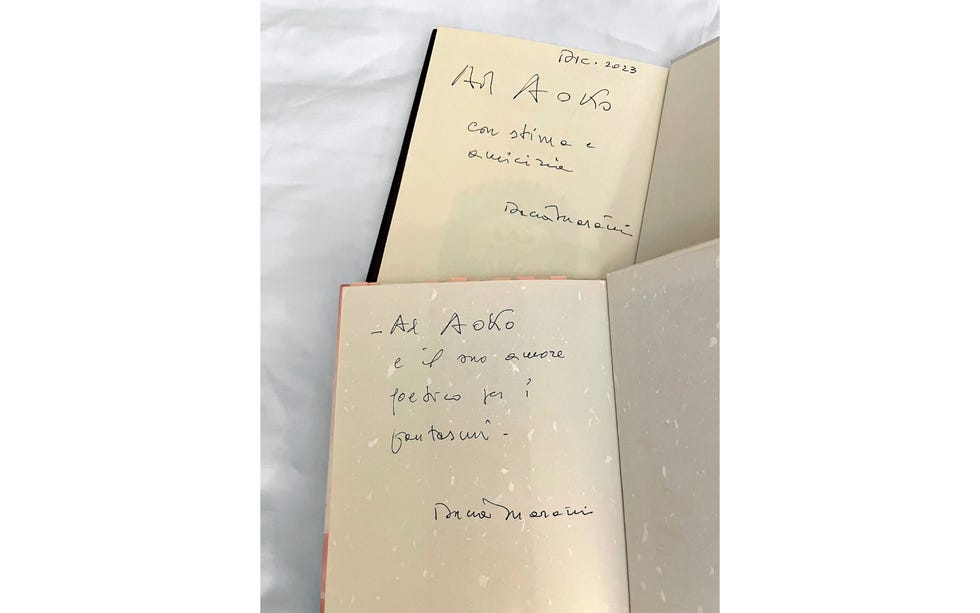 Dic. 2023
Ad Aoko
con stima e
amicizia
Dacia Maraini
- Ad Aoko
e il suo amore
poetico per i
fantasmi -
Dacia Maraini